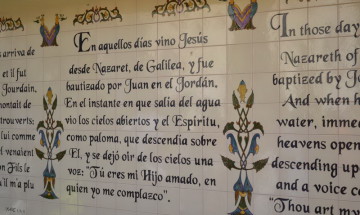 arriva de
et il fut
Jourdain,
montait de
trouverts:
lui comme
venant des
n Fils le
u il m'a plu
En aquellos días vino Jesús
desde Nazaret, de Galilea, y fue
bautizado por Juan en el Jordán.
En el instante en que salía del agua
vio los cielos abiertos y el Espíritu,
como paloma, que descendía sobre
El, y se dejó oir de los cielos una
voz: "Tú eres mi Hijo amado, en
quien yo me complazco".
In those day
Nazareth of
baptized by J
And when h
water, immed
heavens open
descending up
and a voice c
"Thou art my